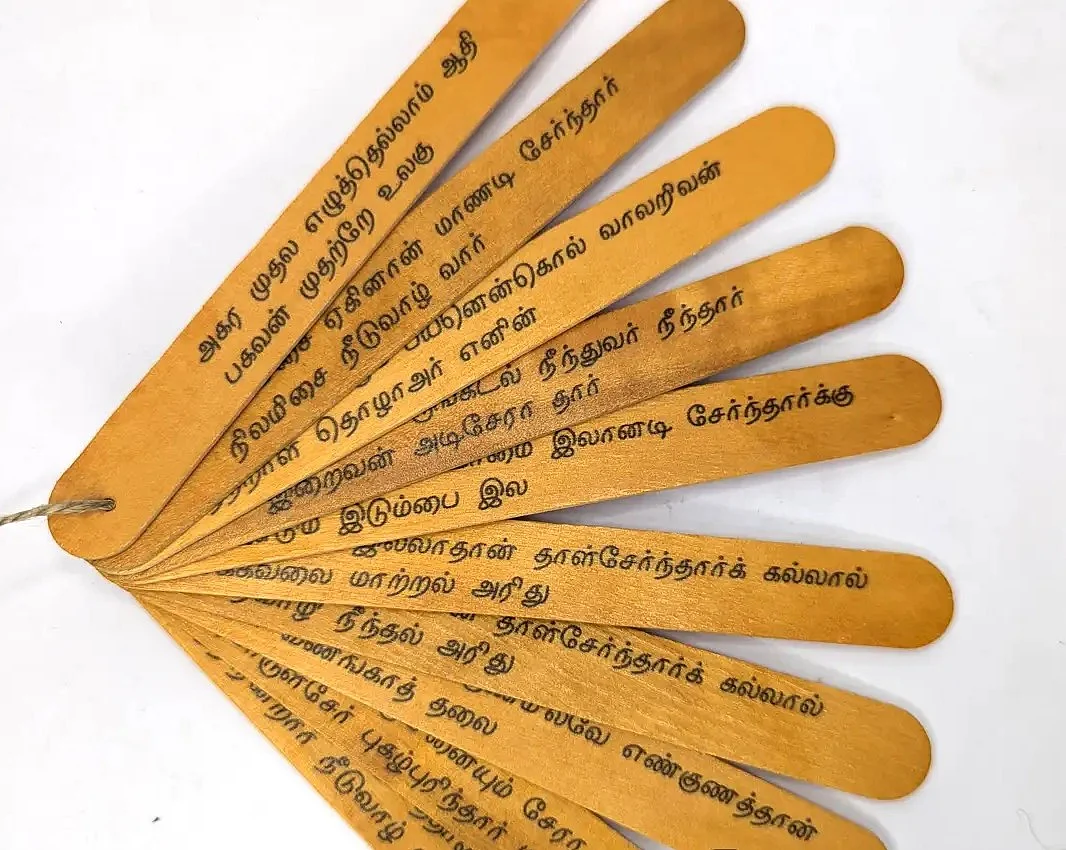 அகர முதல எழுத்தெல்லாம் ஆதி
பகவன் முதற்றே உலகு
ஏகினான் மாணடி சேர்ந்தார்
நிலமிசை நீடுவாழ் வார்
வாலறிவன்
தொழாஅர் எனின்
நீந்துவர் நீந்தார்
இறைவன் அடிசேரா தார்
இலானடி சேர்ந்தார்க்கு
இடும்பை இல
தாள்சேர்ந்தார்க் கல்லால்
மாற்றல் அரிது
தாள்சேர்ந்தார்க் கல்லால்
நீந்தல் அரிது
எண்குணத்தான்
தலை
சேரா
புகழ்புரிந்தார்
நீடுவாழ்